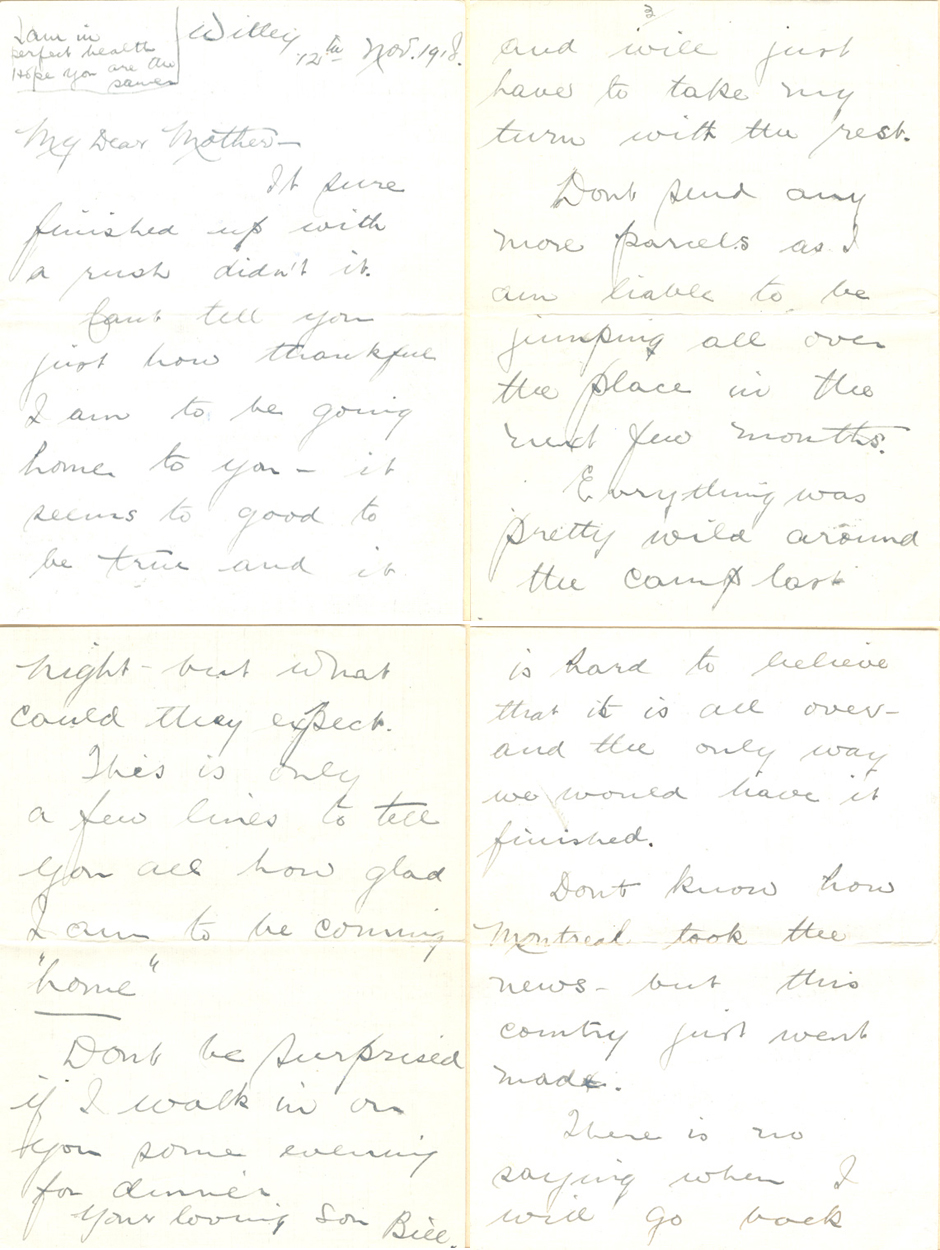 I am in
perfect health
Hope you are the
same
Witley
12th Nov. 1918.
My Dear Mother—
It sure
finished up with
a rush didn't it.
Cant tell you
just how thankful
I am to be going
home to you – it
seems to good to
be true and it
is hard to believe
that it is all over–
and the only way
we would have it
finished.
Dont know how
Montreal took the
news– but this
country just went
mad.
There is no
saying when I
will go back
and will just
have to take my
turn with the rest.
Dont send any
more parcels as I
am liable to be
jumping all over
the place in the
next few months.
Evrything was
pretty wild around
the camp last
night– but what
could they expect.
This is only
a few lines to tell
you all how glad
I am to be coming
"home"
Dont be surprised
if I walk in on
you some evening
for dinner
Your loving Son Bill.